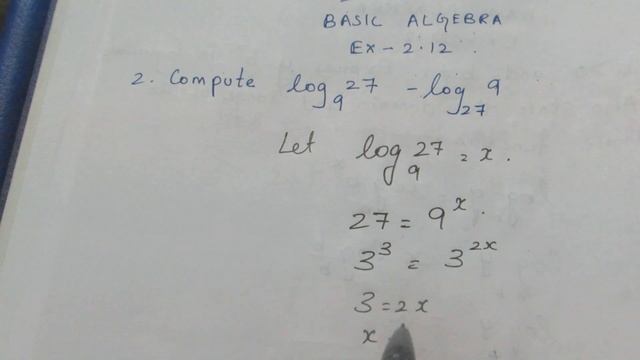 BASIC ALGEBRA
EX - 2.12.
2. Compute log₉27 - log₂₇9
Let log₉27 = x.
27 = 9ˣ.
3³ = 3²ˣ
3 = 2x
x